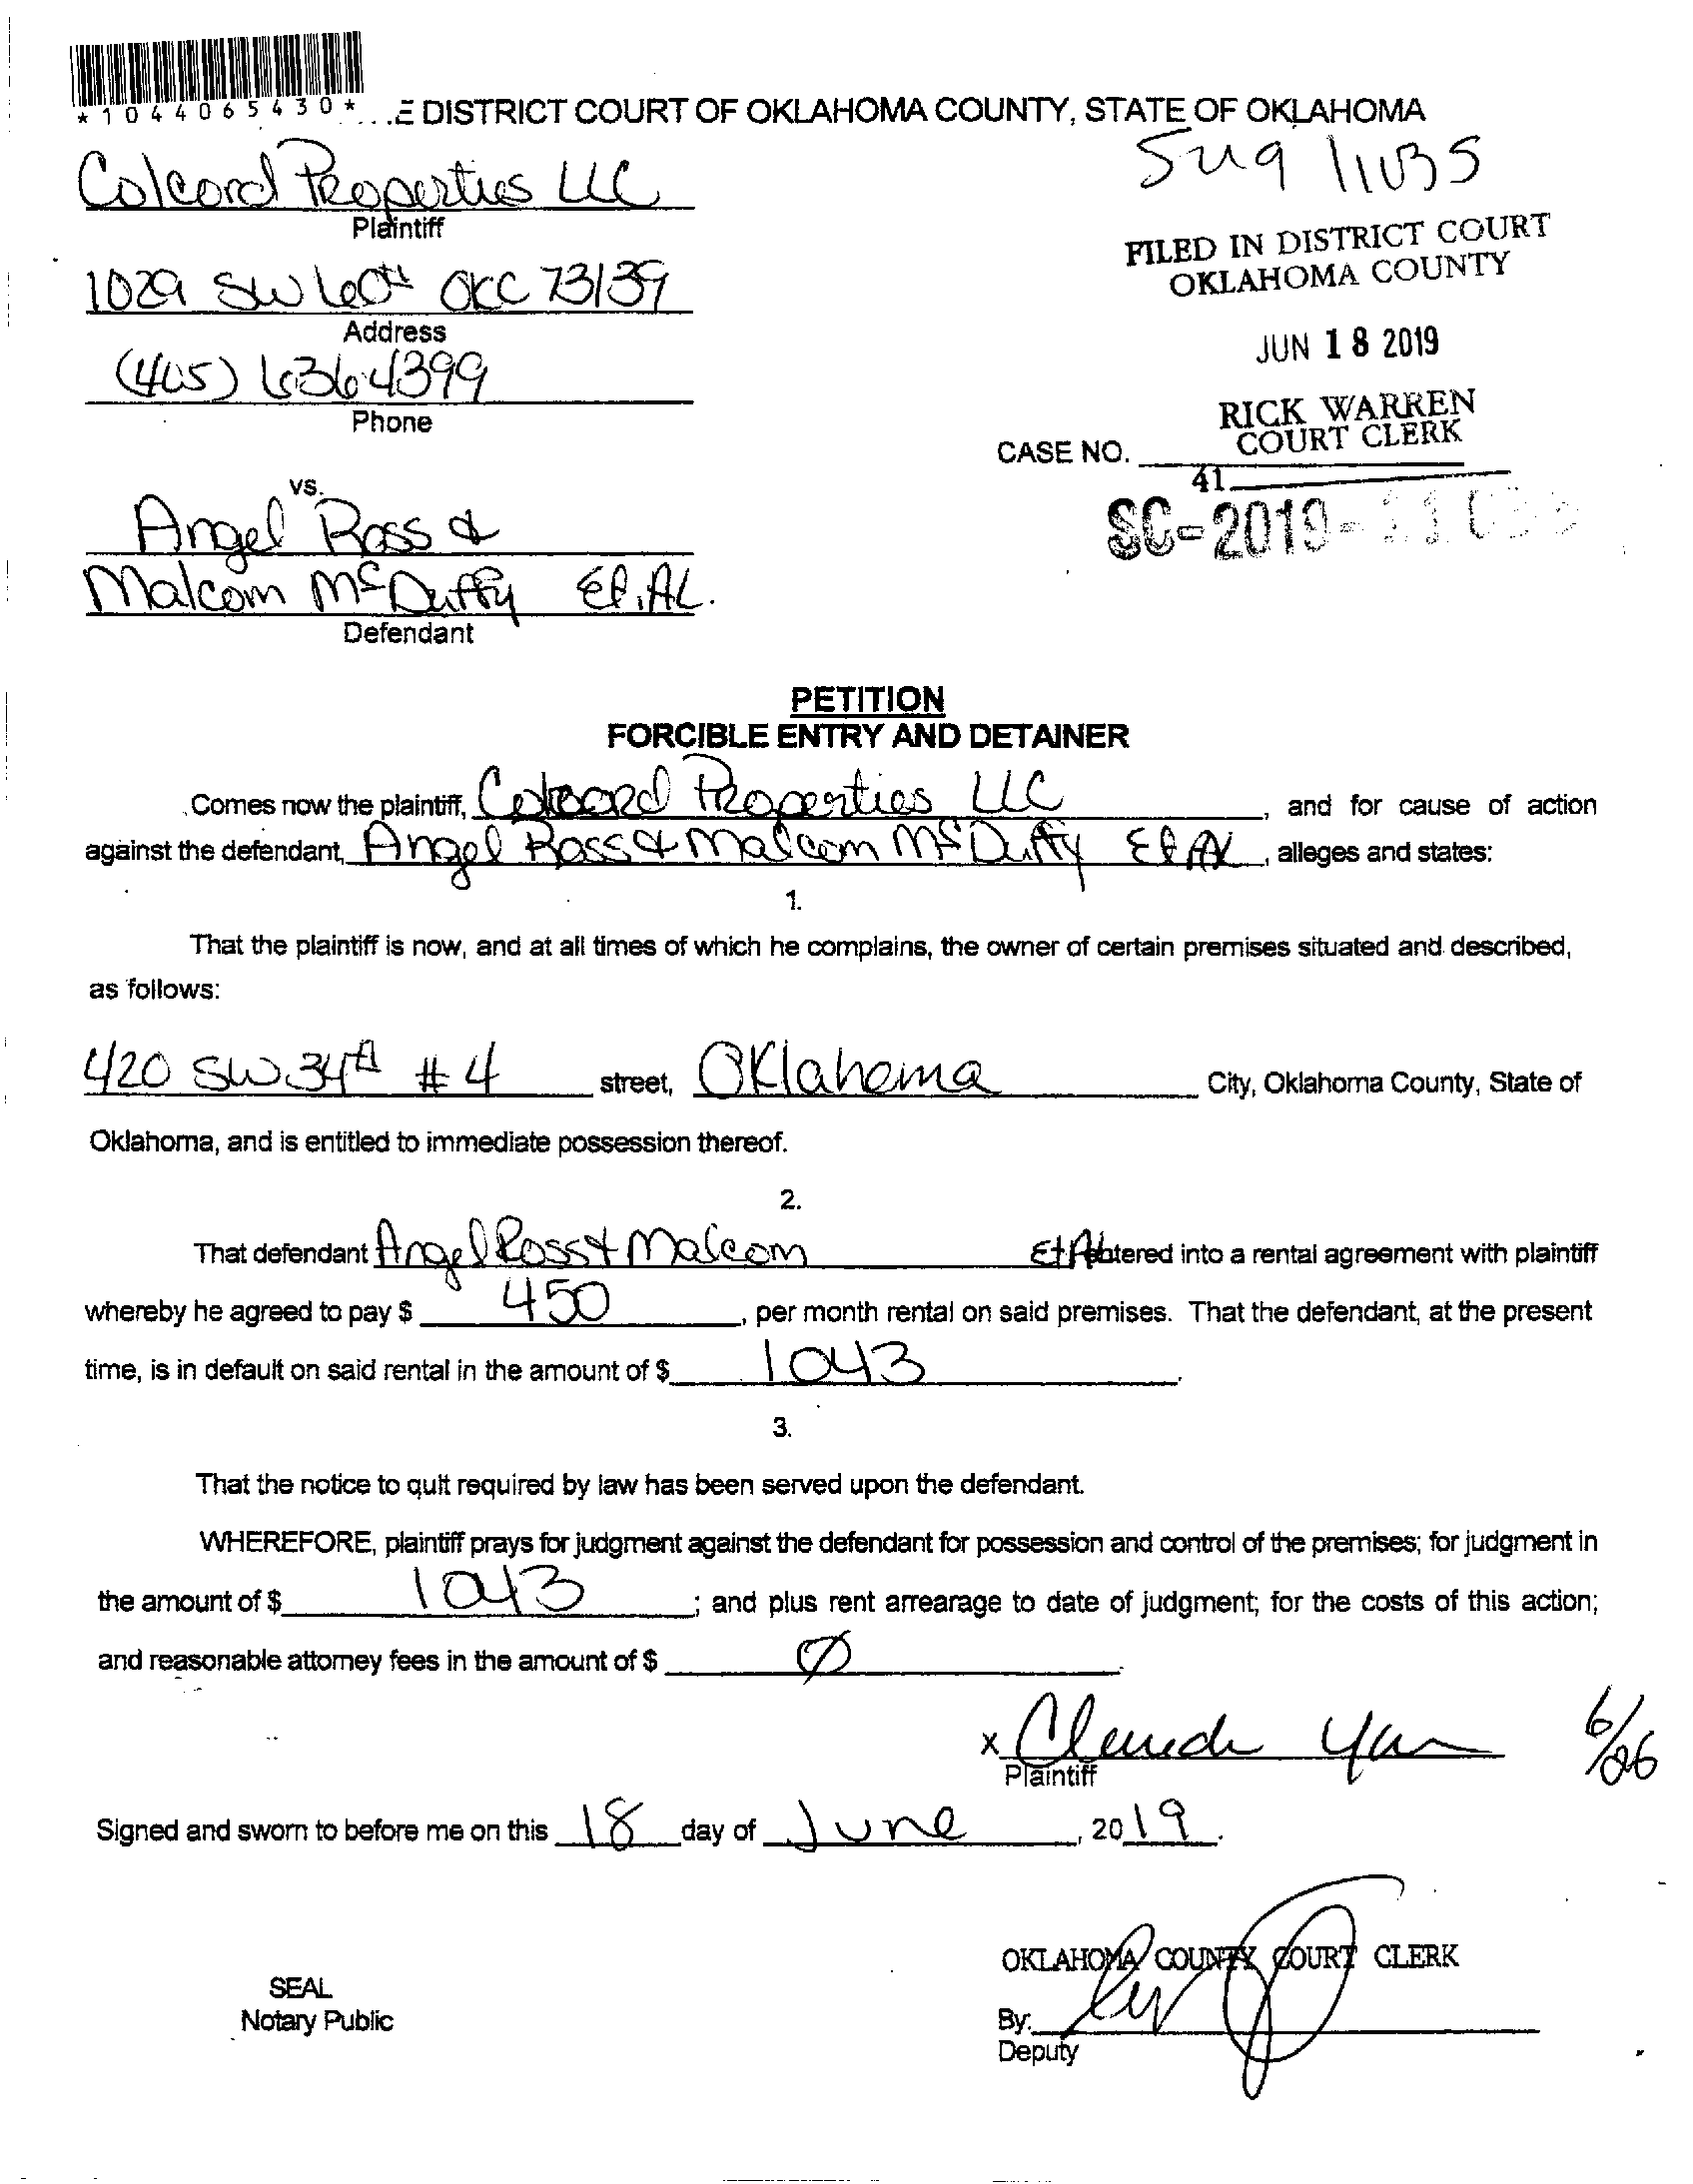 *1044065430*
E DISTRICT COURT OF OKLAHOMA COUNTY, STATE OF OKLAHOMA
Colcord Properties LLC
Plaintiff
FILED IN DISTRICT COURT
OKLAHOMA COUNTY
1029 SW 60th OKC 73139
Address
JUN 18 2019
(405) 636-4399
Phone
RICK WARREN
COURT CLERK
CASE NO.
41
vs.
SC-2019-
Angel Ross &
Malcom McDuffy Et.AL.
Defendant
PETITION
FORCIBLE ENTRY AND DETAINER
Comes now the plaintiff, Colcord Properties LLC, and for cause of action
against the defendant, Angel Ross & Malcom McDuffy Et AL, alleges and states:
1.
That the plaintiff is now, and at all times of which he complains, the owner of certain premises situated and described,
as follows:
420 SW 34th #4 street, Oklahoma City, Oklahoma County, State of
Oklahoma, and is entitled to immediate possession thereof.
2.
That defendant Angel Ross & Malcom Et AL entered into a rental agreement with plaintiff
whereby he agreed to pay $ 450, per month rental on said premises. That the defendant, at the present
time, is in default on said rental in the amount of $ 1043.
3.
That the notice to quit required by law has been served upon the defendant.
WHEREFORE, plaintiff prays for judgment against the defendant for possession and control of the premises; for judgment in
the amount of $ 1043; and plus rent arrearage to date of judgment; for the costs of this action;
and reasonable attorney fees in the amount of $ Ø
x 6/26
Plaintiff
Signed and sworn to before me on this 18 day of June, 2019.
OKLAHOMA COUNTY COURT CLERK
SEAL
Notary Public
By:
Deputy